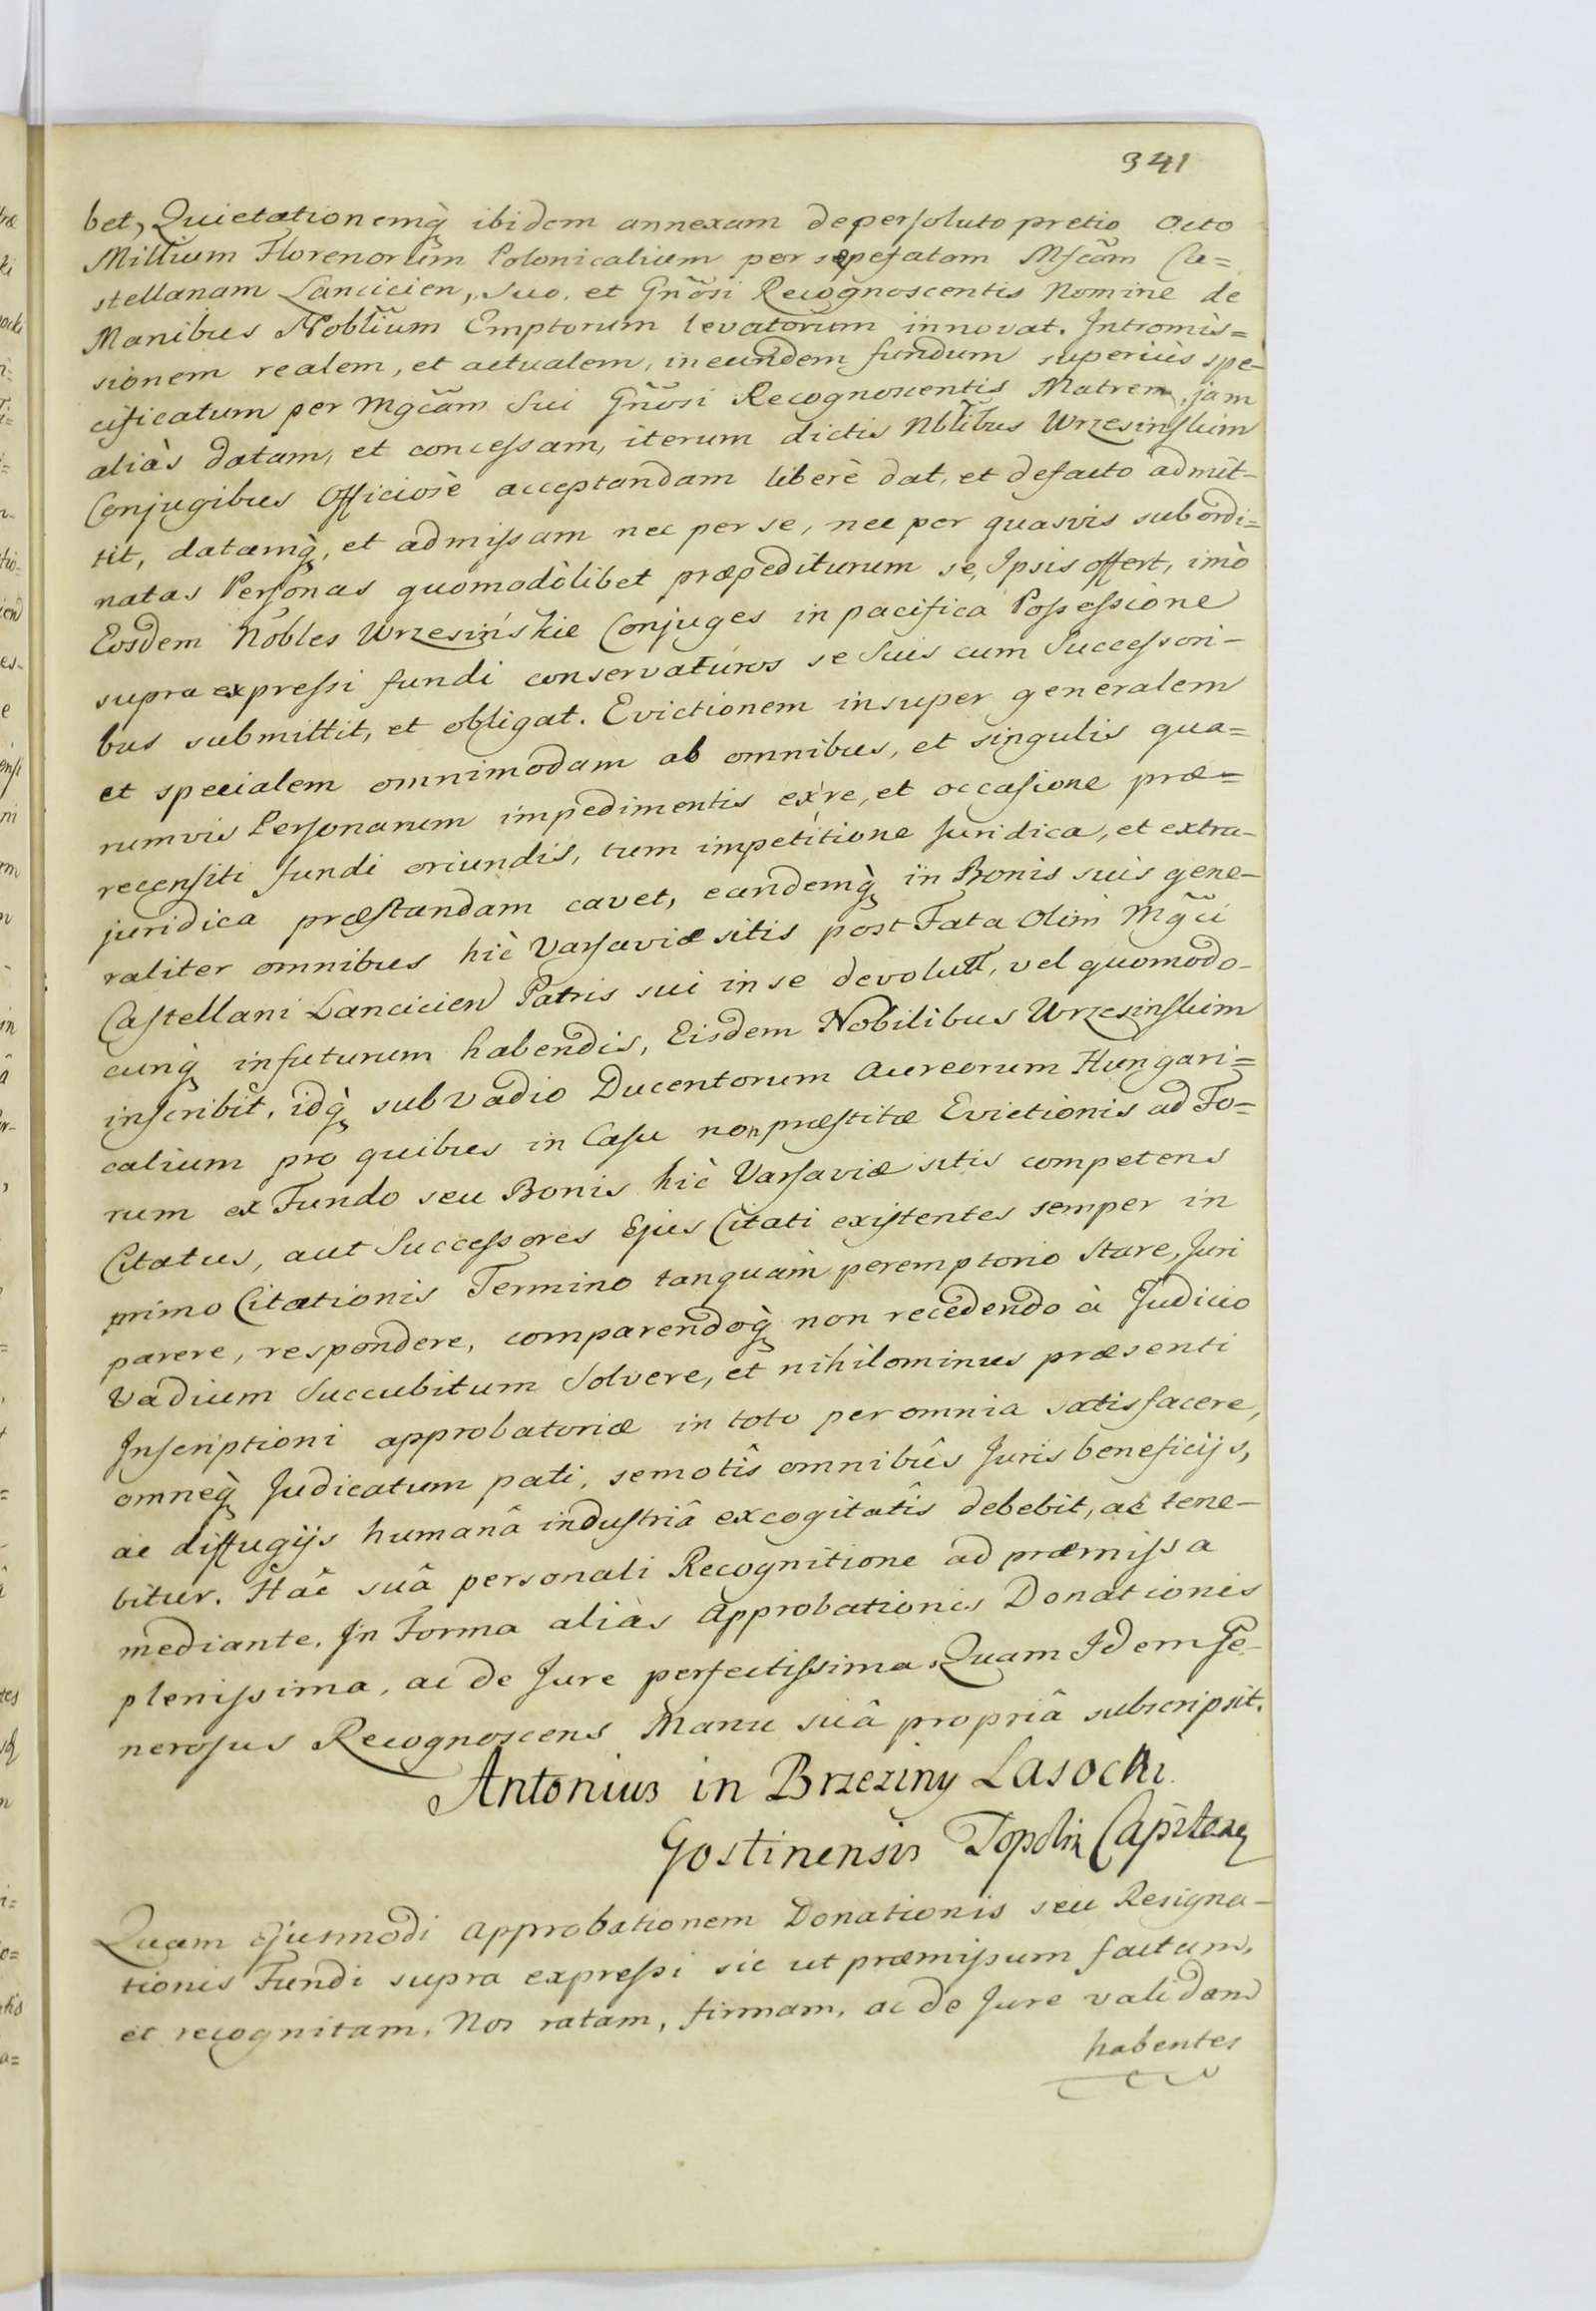 341
bet, Quietationemq̀ ibidem annexam de persoluto pretio Octo
Millium Florenorum Polonicalium per sæpefatam Mgcãm Ca=
stellanam Lancicien, Suo, et Gnõsi Recognoscentis Nomine de
Manibus Nobliũm Emptorum levatorum innovat. Intromis=
sionem realem, et actualem, in eundem fundum superiùs spe-
cificatum per Mgcãm Sui Gnõsi Recognoscentis Matrem, jam
aliàs datam, et concessam, iterum dictis Nblĩbus Wrzesinskim
Conjugibus Officiosè acceptandam liberè dat, et defacto admit-
tit, datamq̀, et admissam nec per se, nec per quasvis subordi=
natas Personas quomodòlibet præpediturum se, Ipsis offert, imò
Eosdem Nobles Wrzesińskie Conjuges in pacifica Possessione
supra expressi fundi conservaturos se Suis cum Successori-
bus submittit, et obligat. Evictionem insuper generalem
et specialem omnimodam ab omnibus, et singulis qua=
rumvis Personarum impedimentis ex re, et occasione præ=
recensiti fundi oriundis, tum impetitione Juridica, et extra-
juridica præstandam cavet, eandemq̀ in Bonis suis gene-
raliter omnibus hic Varsaviæ sitis post Fata Olim Mgcĩ
Castellani Lancicien Patris sui in se devolutĩ, vel quomodo-
cunq̀ infuturum habendis, Eisdem Nobilibus Wrzesinskim
inscribit, idq̀ sub vadio Ducentorum Aureorum Hungari=
calium pro quibus in Casu non præstitæ Evictionis ad Fo=
rum ex Fundo seu Bonis hic Varsaviæ sitis competens
Citatus, aut Successores Ejus Citati existentes semper in
primo Citationis Termino tanquam peremptorio Stare, Juri
parere, respondere, comparendoq̀ non recedendo à Judicio
Vadium Succubitum Solvere, et nihilominus præsenti
Inscriptioni approbatoriæ in toto per omnia satisfacere,
omneq̀ Judicatum pati, semotîs omnibûs Juris beneficijs,
ac diffugijs humanâ industriâ excogitatîs debebit, ac tene-
bitur. Hâc suâ personali Recognitione ad præmissa
mediante. In Forma aliàs Approbationis Donationis
plenissima, ac de Jure perfectissima. Quam Idem Ge-
nerosus Recognoscens Manu suâ propriâ subscripsit.
Antonius in Brzeziny Lasocki
Gostinensis Capitane
Quam ejusmodi Approbationem Donationis seu Resigna-
tionis Fundi supra expressi sic ut præmissum factam,
et recognitam, Nos ratam, firmam, ac de Jure validam
habentes